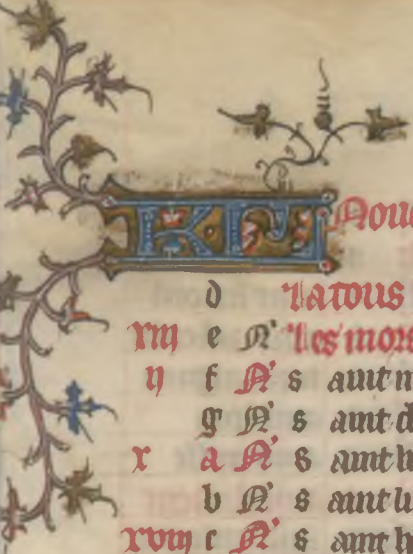 KL Nou
d la tous
xiii e N' les mors
ij f N' s aint m
g N' s aint d
x a N' s aint
b N' s aint l
xviij c N' s aint